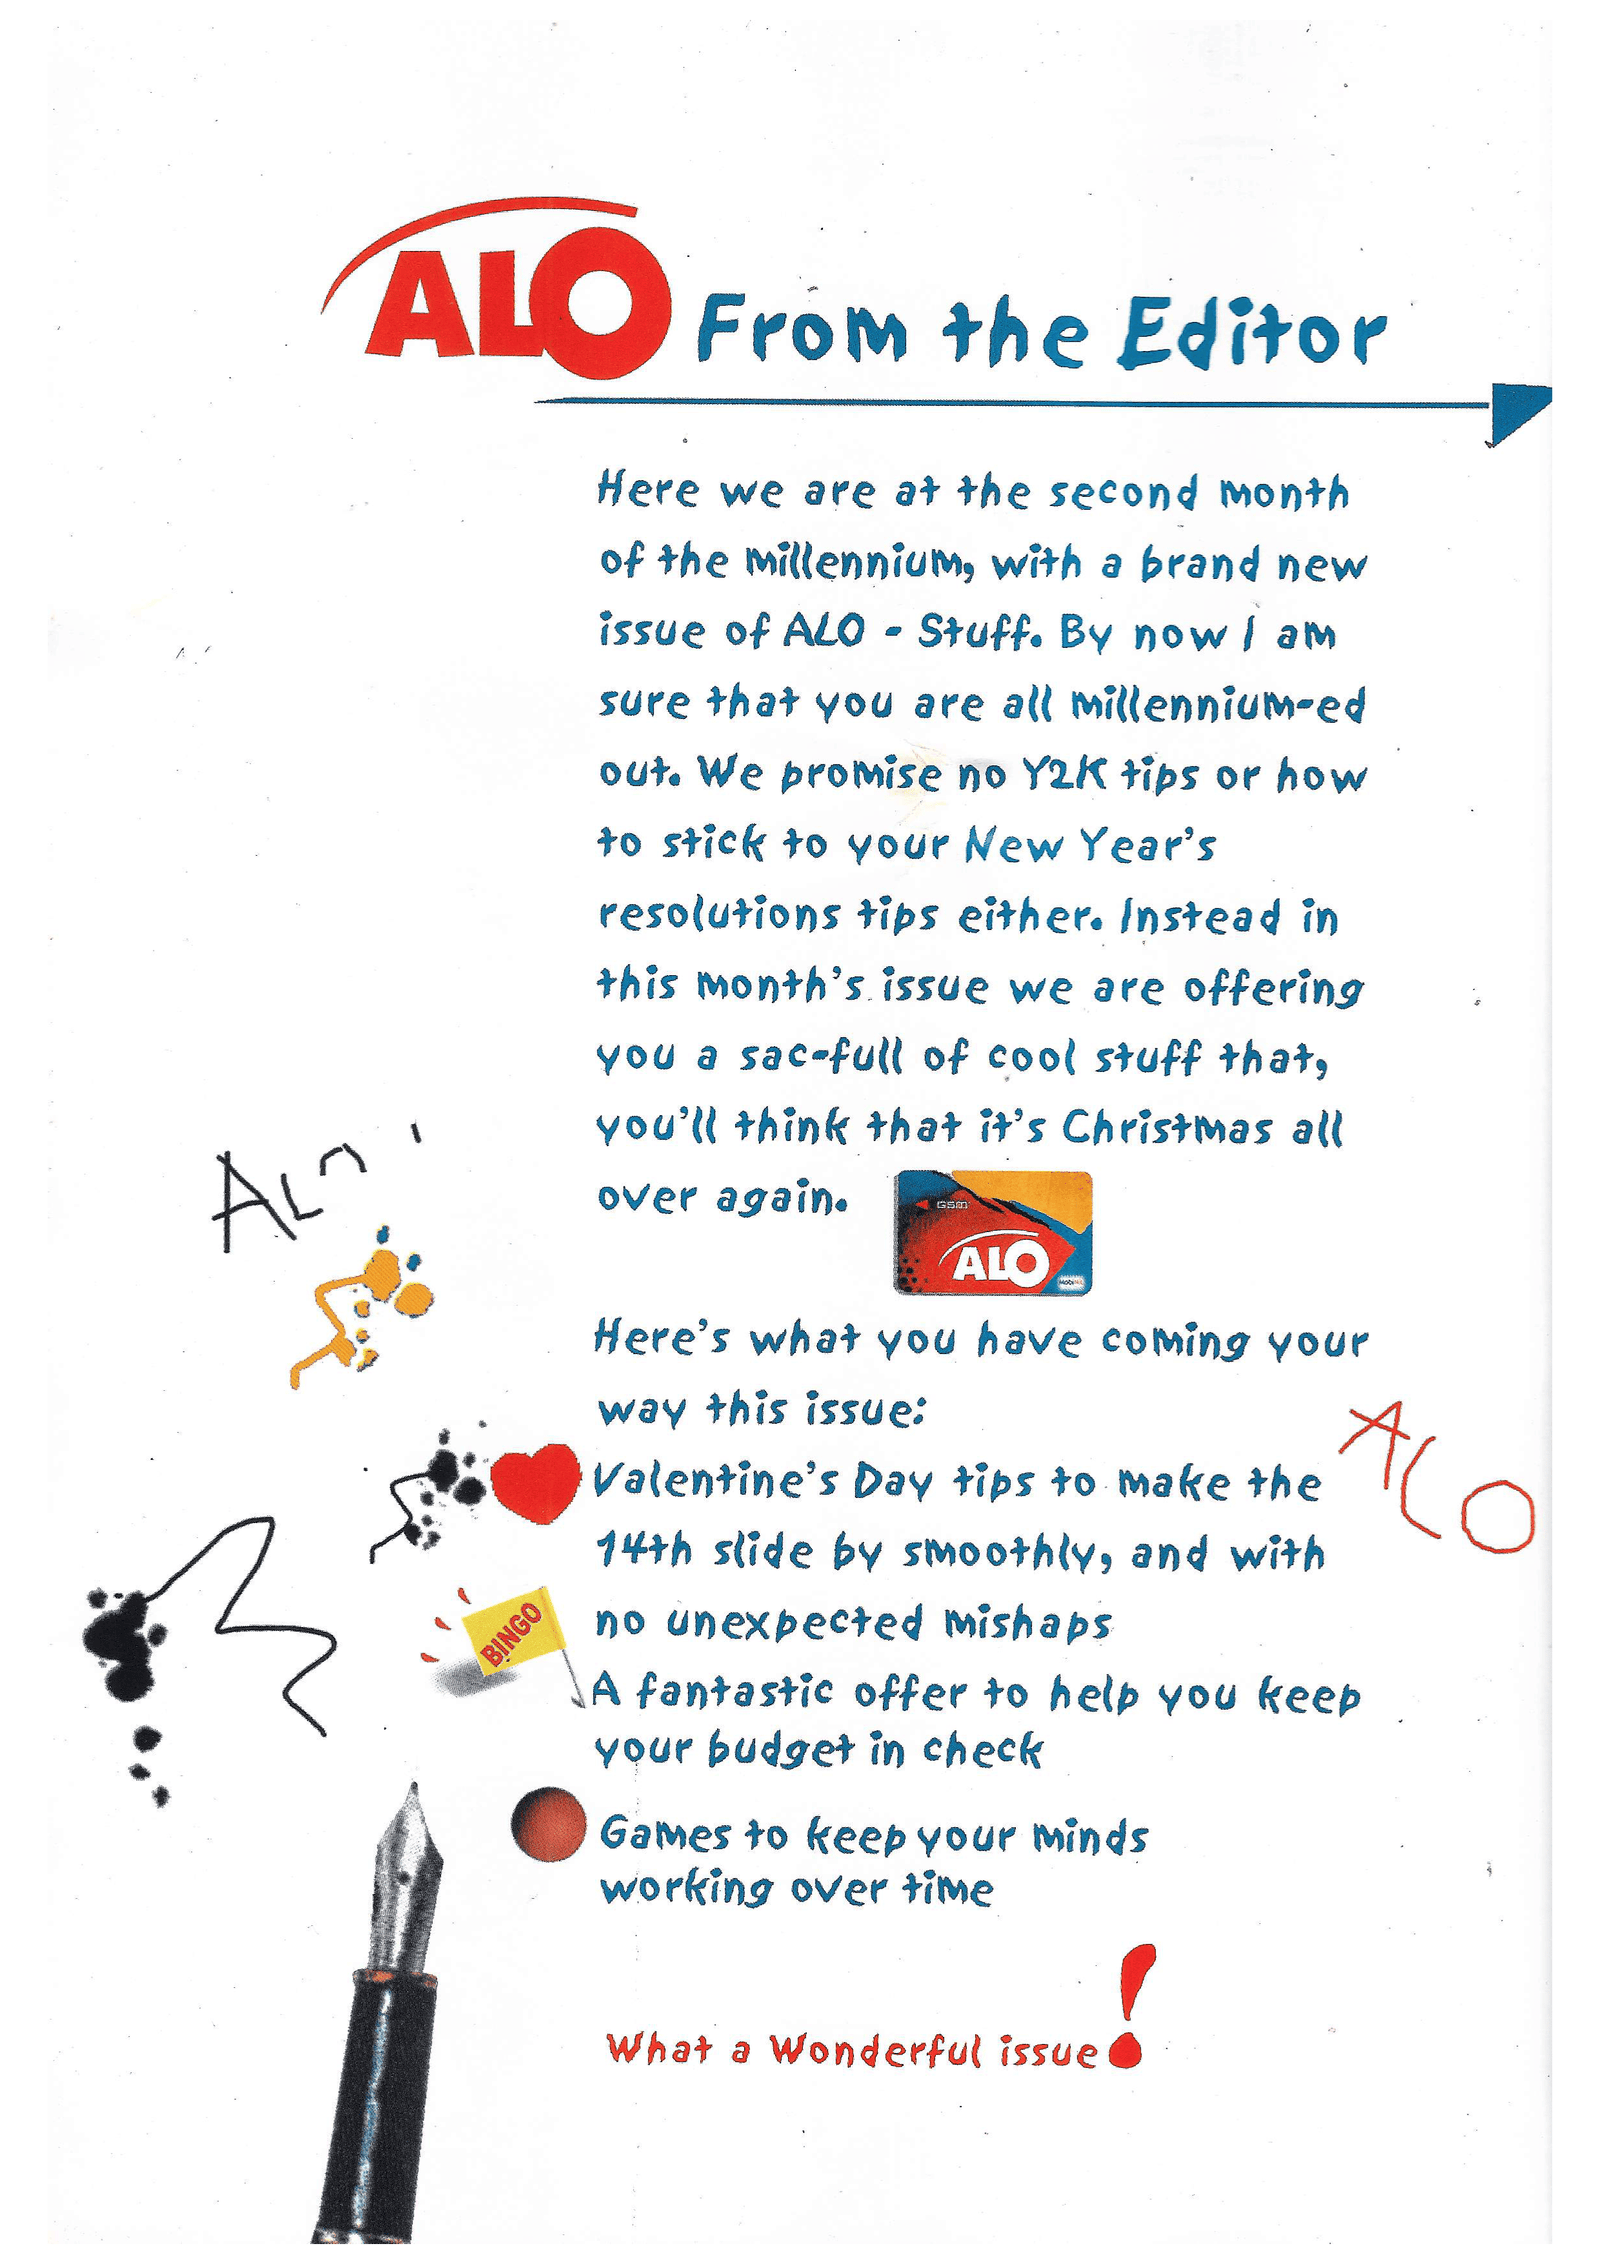 ALO From the Editor
Here we are at the second month
of the millennium, with a brand new
issue of ALO - Stuff. By now I am
sure that you are all millennium-ed
out. We promise no Y2K tips or how
to stick to your New Year's
resolutions tips either. Instead in
this month's issue we are offering
you a sac-full of cool stuff that,
you'll think that it's Christmas all
over again.
GSM
ALO
Here's what you have coming your
way this issue:
Valentine's Day tips to make the
14th slide by smoothly, and with
no unexpected mishaps
ALO
BINGO
A fantastic offer to help you keep
your budget in check
Games to keep your minds
working over time
What a Wonderful issue!